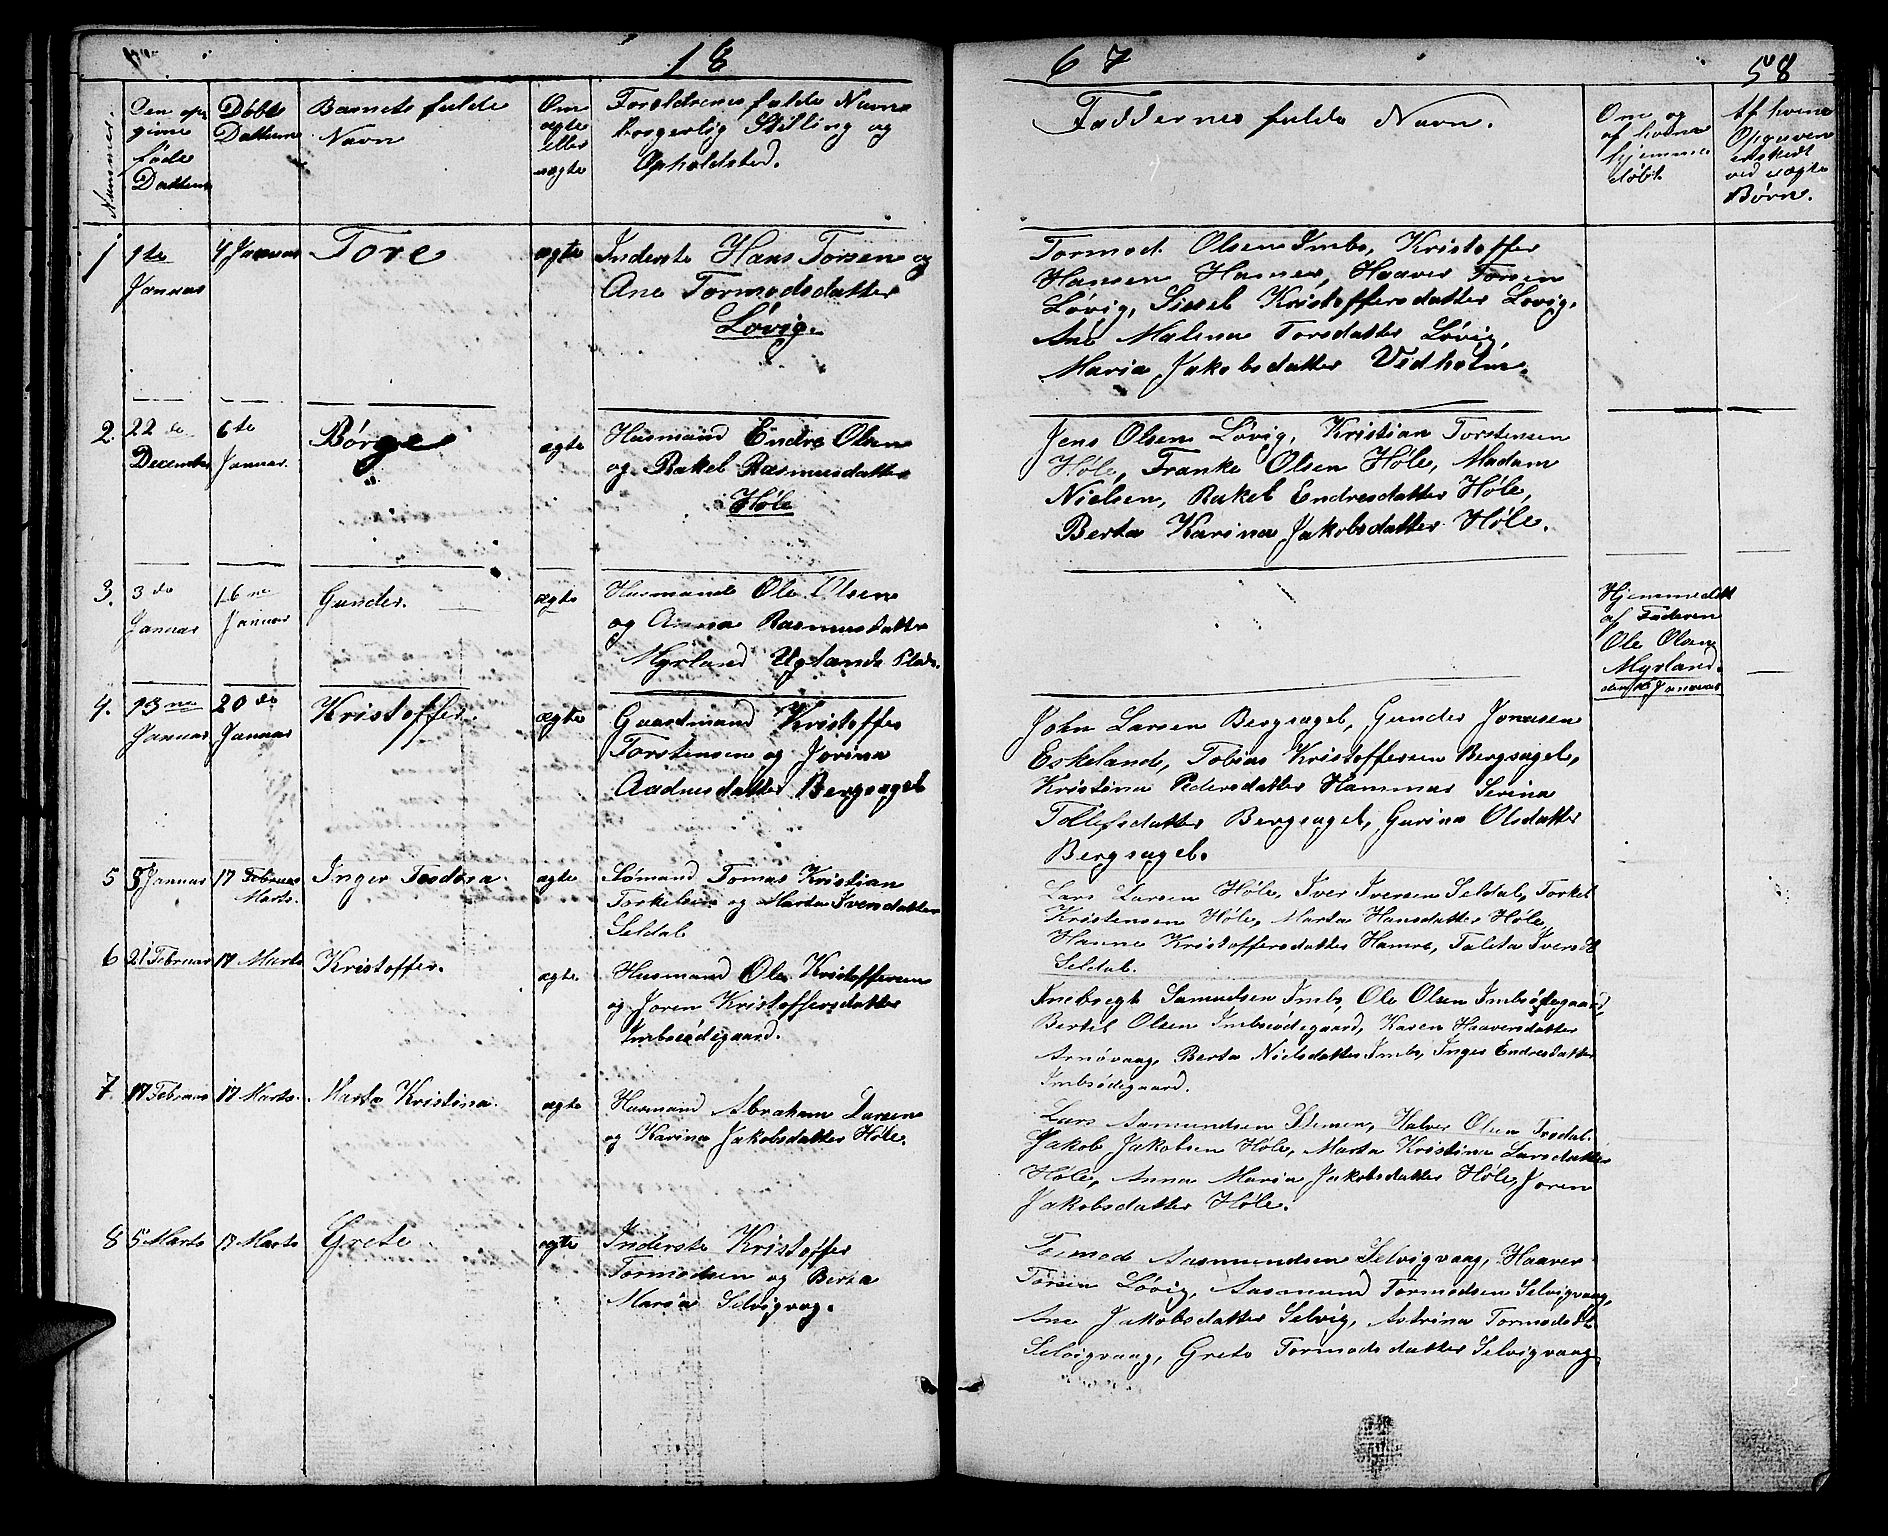 18 67 58
Nummer.
Den op-
givne
føde
Dattum
Døbte
Dattum
Barnets fulde
Navn
Om
ægte
eller
uægte
Foreldrenes fulde Navn
borgerlig Stilling og
Opholdsted.
Faddernes fulde Navn.
Om og
af hvem
hjemme
døbt.
Af hvem
Opgaven
ved uægte
Børn.
1 1te
Januar
4 Januar
Tore
ægte
Inderste Hans Torsen og
Ane Tormodsdatter
Løvig.
Tormod Olsen Imbs, Kristoffer
Hansen Hamer, Haaver Torsen
Løvig, Sissel Kristoffersdatter Løvig,
Ane Malena Torsdatter Løvig,
Maria Jakobsdatter Vidholm.
2. 22de
December
6te
Januar.
Børge
ægte
Husmand Endre Olsen
og Rakel Rasmusdatter
Høle
Jens Olsen Løvig, Kristian Torstensen
Høle, Franke Olsen Høle, Madam
Nielsen, Rakel Endresdatter Høle,
Berta Karina Jakobsdatter Høle.
3. 3de
Januar
16ne
Januar
Gunder.
ægte
Husmand Ole Olsen
og Anna Rasmusdatter
Myrland Uglands Plads.
Hjemmedøbt
af Faderen
Ole Olsen
Myrland.
Januar
4. 13ne
Januar
20de
Januar
Kristoffer.
ægte
Gaardmand Kristoffer
Torstensen og Jorina
Aadnesdatter Bergsagel
John Larsen Bergsagel, Gunder Jonassen
Eskeland, Tobias Kristoffersen Bergsagel,
Kristina Pedersdatter Hammar Serina
Tollefsdatter Bergsagel, Gurina Olsdatter
Bergsagel.
5 8 Januar
17 Februar
Marts.
Inger Teodora.
ægte
Sømand Tomas Kristian
Torkelsen og Marta Iversdatter
Seldal
Lars Larsen Høle, Iver Iversen Seldal, Torkel
Kristensen Høle, Marta Hansdatter Høle,
Hanne Kristoffersdatter Hamre, Taleta Iversdt
Seldal.
6 21 Februar
17 Marts
Kristoffer.
ægte
Husmand Ole Kristoffersen
og Joren Kristoffersdatter
Imbsødegaard.
Samuelsen Imbs, Ole Olsen Imbsødegaard,
Bertel Olsen Imbsødegaard, Karen Haaversdatter
Arnøvaag, Berta Nielsdatter Imbs, Inger Endresdatter
Imbsødegaard.
7 17 Februar
17 Marts.
Marta Kristina.
ægte
Husmand Abraham Larsen
og Karina Jakobsdatter Høle.
Lars Asmundsen Halver Olsen
Jakob Jakobsen Høle, Marta Kristina Larsdatter
Høle, Anna Maria Jakobsdatter Høle, Joren
Jakobsdatter Høle.
8 5 Marts
17 Marts
Grete.
ægte
Inderste Kristoffer
Tormodsen og Berta
Maria Selvigvag.
Tormod Aasmundsen Selvigvaag, Haaver
Torsen Løvig, Aasmund Tormodsen Selvigvaag,
Ane Jakobsdatter Selvig, Astrina Tormodsdt
Selvigvaag, Grete Tormodsdatter Selvigvaag